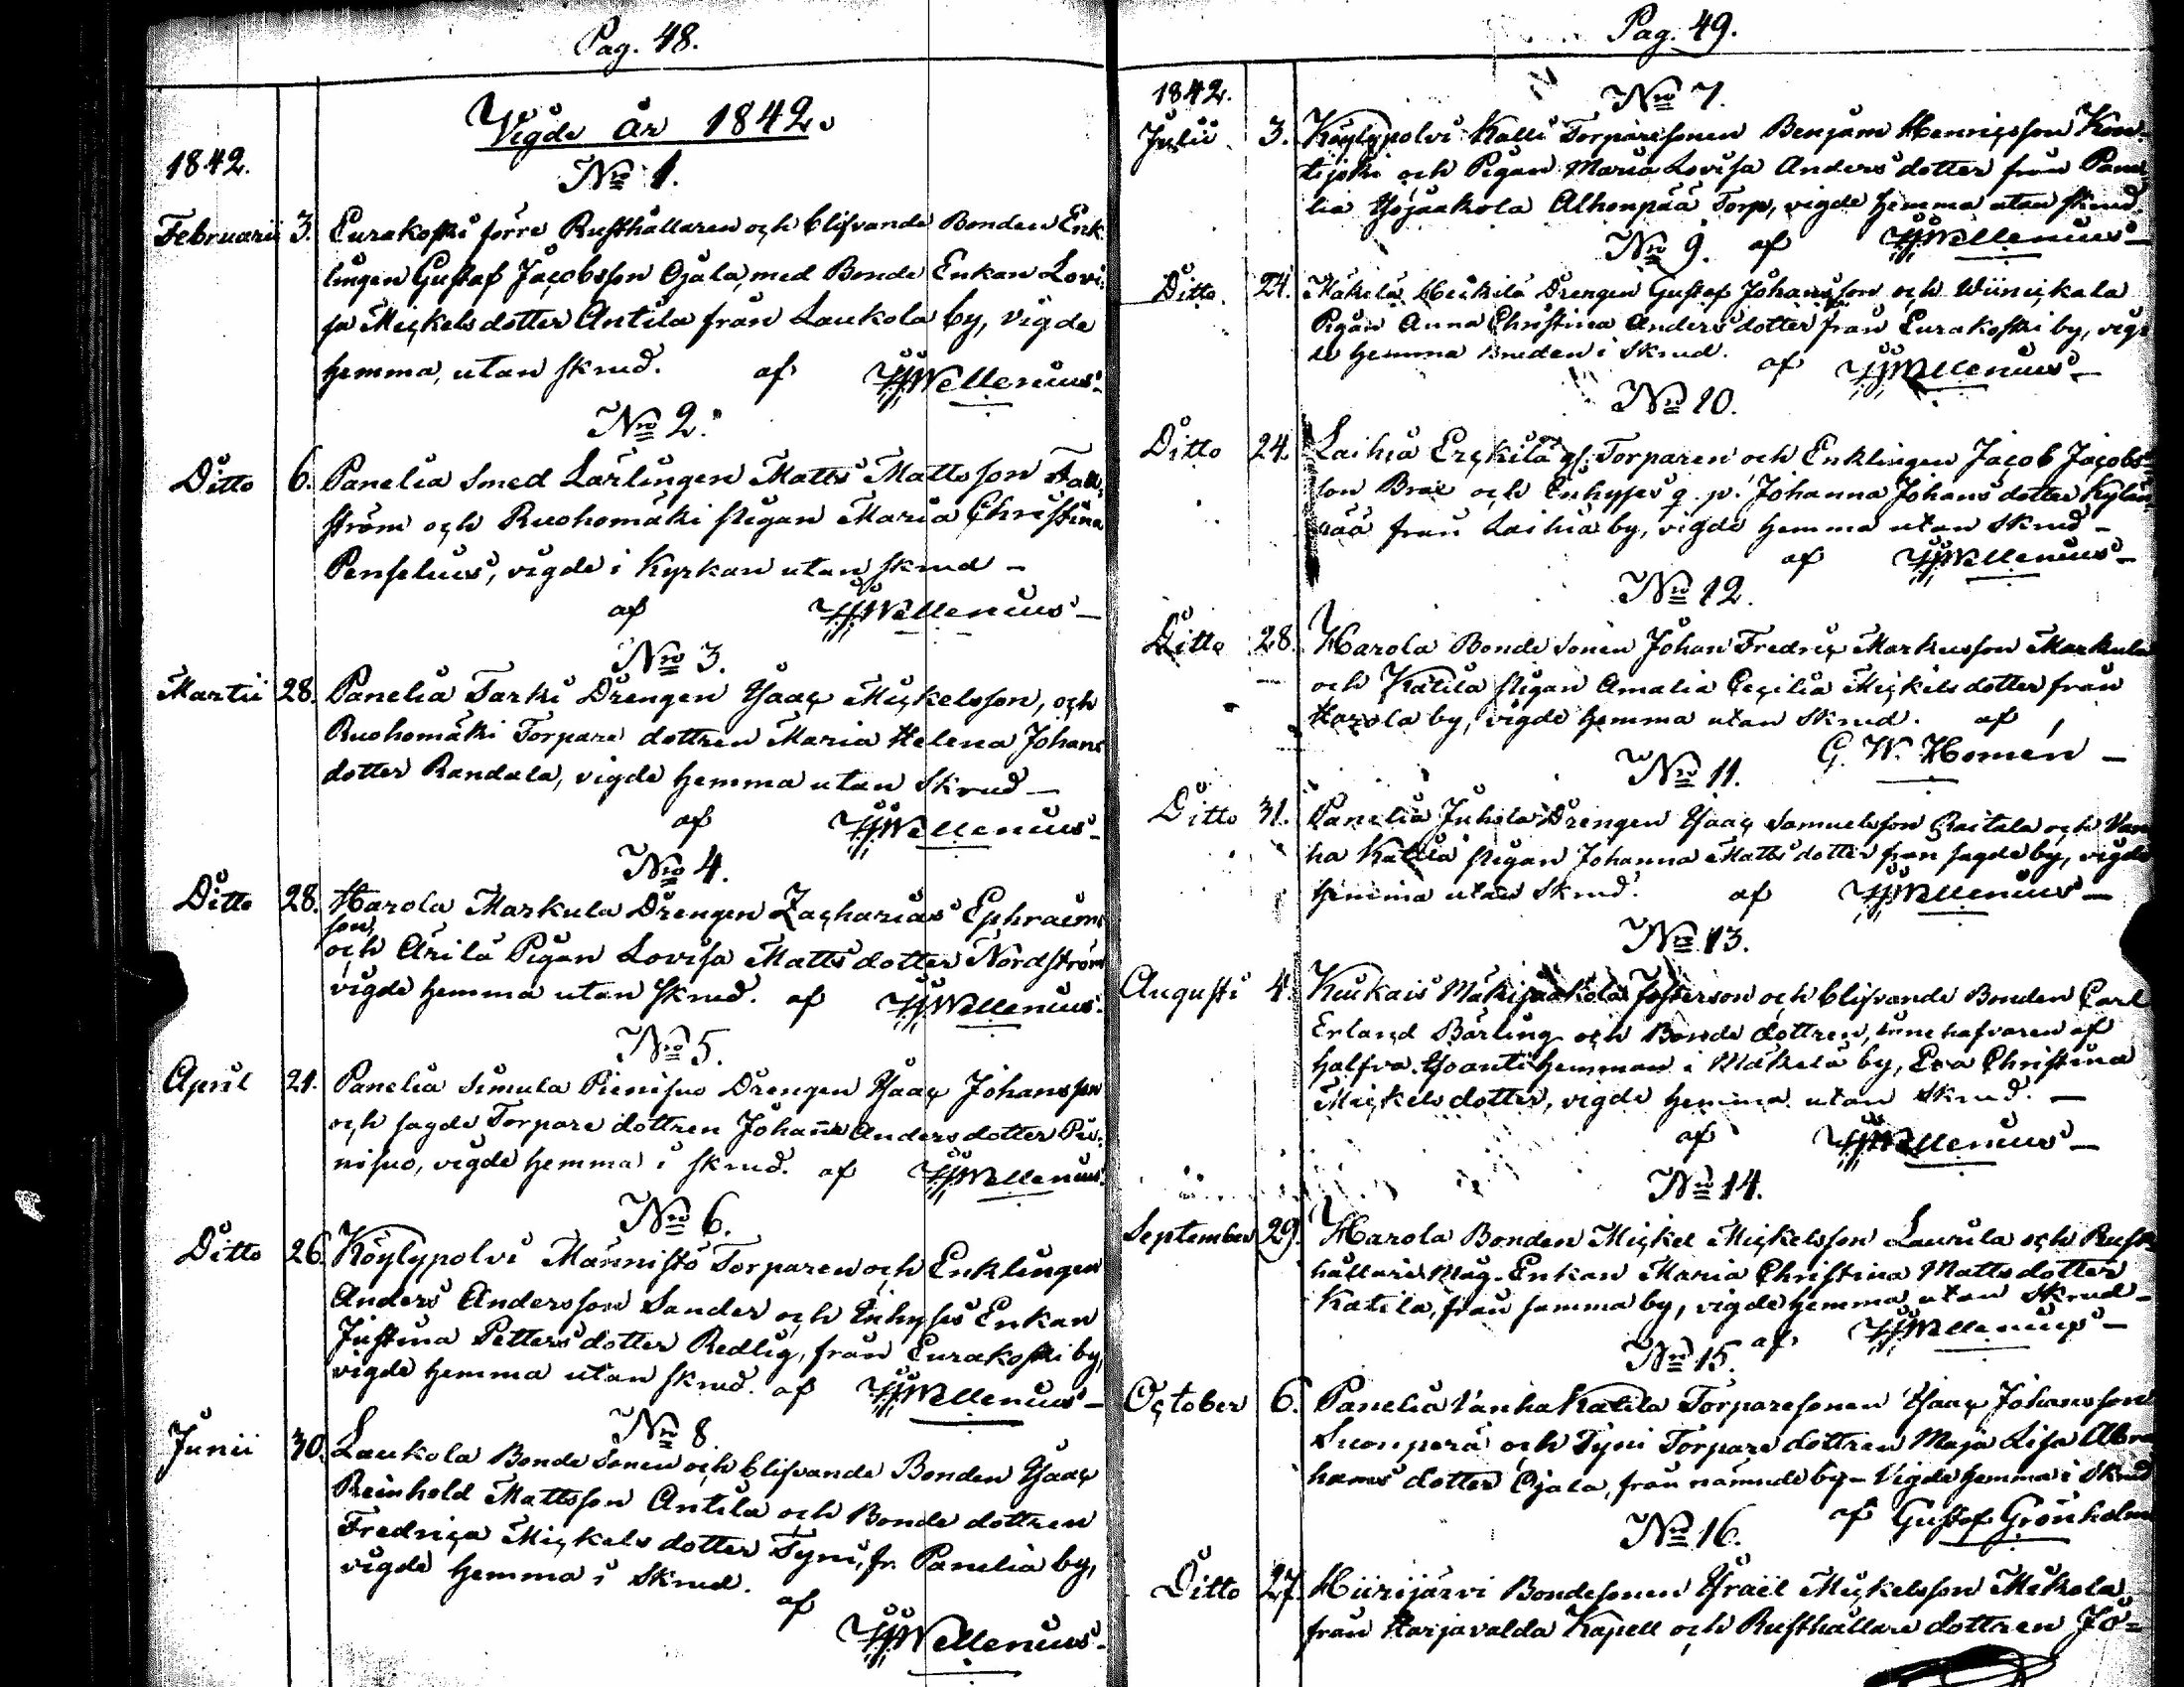 Pag. 48.
Vigde år 1842.
1842.
No 1.
Februarii 3. Eurakoski förre Rusthållaren och blifvande Bonden Enk-
lingen Gustaf Jacobsson Ojala, med Bonde Enkan Lovi-
sa Mickelsdotter Antila från Laukola by, vigde
hemma, utan skrud. af Wellenius
No 2.
Ditto 6. Panelia Smed Lärlingen Matts Mattsson
ström och Ruohomäki pigan Maria Christina
Penselius, vigde i Kyrkan utan skrud
af Wellenius
No 3.
Martii 28. Panelia Tarki Drengen Isaac Mickelsson, och
Ruohomäki Torpare dottren Maria Helena Johans
dotter Randala, vigde hemma utan skrud
af Wellenius
No 4.
Ditto 28. Harola Markula Drengen Zacharias Ephraims
son,
och Arila Pigan Lovisa Matts dotter Nordström
vigde hemma utan skrud. af Wellenius
No 5.
April 21. Panelia Simula Pienisuo Drengen Isaac Johansson
och sagde Torpare dottren Johanna Andersdotter Pie-
nisuo, vigde hemma i skrud. af Wellenius
No 6.
Ditto 26. Köylypolvi Männistö Torparen och Enklingen
Anders Andersson Sander och Inhyses Enkan
Justina Petters dotter Redlig, från Eurakoski by,
vigde hemma utan skrud. af Wellenius
No 8.
Junii 30. Laukola Bonde sonen och blifvande Bonden Isaac
Reinhold Mattsson Antila och Bonde dottren
Fredrica Mickels dotter Tyni, fr. Panelia by,
vigde hemma i skrud.
af
Wellenius
Pag. 49.
1842.
No 7.
Julii 3. Köylypolvi Kalli Torparesonen Benjam Henricsson Kon-
tijoki och Pigan Maria Lovisa Anders dotter från Pane-
lia Yojaakola Alhonpää Torp, vigde hemma utan skrud.
No 9. af Wellenius
Ditto 24. Mäkelä Heikilä Drengen Gustaf Johansson och Wiinickala
Pigan Anna Christina Anders dotter från Eurakoski by, vig-
de hemma Bruden i skrud. af Wellenius
No 10.
Ditto 24. Laihia Erckilä gl. Torparen och Enklingen Jacob Jacobs-
son Brae och Inhyses q. p. Johanna Johans dotter Kylän-
pää från Laihia by, vigde hemma utan skrud
af Wellenius
No 12.
Ditto 28. Harola Bonde sonen Johan Fredric Markusson Markula
och Katila pigan Amalia Cecilia Mickels dotter från
Harola by, vigde hemma utan skrud. af
G. W. Homén
No 11.
Ditto 31. Panelia Juhola Drengen Isaac Samuelsson Raitala och Van-
ha Katila pigan Johanna Matts dotter från sagde by, vigde
hemma utan skrud. af Wellenius
No 13.
Augusti 4. Kiukais Mäkijaakola Fosterson och blifvande Bonden Carl
Erland Bärling och Bonde dottren, innehafvaren af
halfva Yoanti hemman i Mäkelä by, Eva Christina
Mickels dotter, vigde hemma utan skrud.
af Wellenius
No 14.
September 29. Harola Bonden Mickel Mickelsson Laurila och Rust-
hållare Måg-Enkan Maria Christina Matts dotter
Katila, från samma by, vigde hemma utan skrud
No 15. af Wellenius
October 6. Panelia Vanha Katila Torparesonen Isaac Johansson
Suonperä och Tyni Torpare dottren Maja Lisa Abra-
hams dotter Ojala, från nämnde by Vigde hemma i skrud
af Gustaf Grönholm
No 16.
Ditto 27. Hiirijärvi Bondesonen Israel Mickelsson Mikola
från Harjavalda Kapell och Rusthållare dottren Jo-